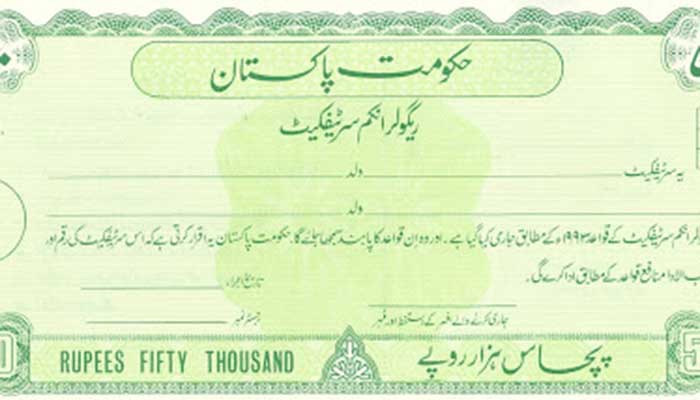 حکومت پاکستان
ریگولر انکم سرٹیفکیٹ
یہ سرٹیفکیٹ ولد
ولد
انکم سرٹیفکیٹ کے قواعد ۱۹۹۳ء کے مطابق جاری کیا گیا ہے۔ اور وہ ان قواعد کا پابند سمجھا جائے گا۔ حکومت پاکستان یہ اقرار کرتی ہے کہ اس سرٹیفکیٹ کی رقم اور
الادا منافع قواعد کے مطابق ادا کرے گی۔
تاریخ اجراء
جاری کرنے والے افسر کے دستخط اور مہر
رجسٹر نمبر
RUPEES FIFTY THOUSAND پچاس ہزار روپے